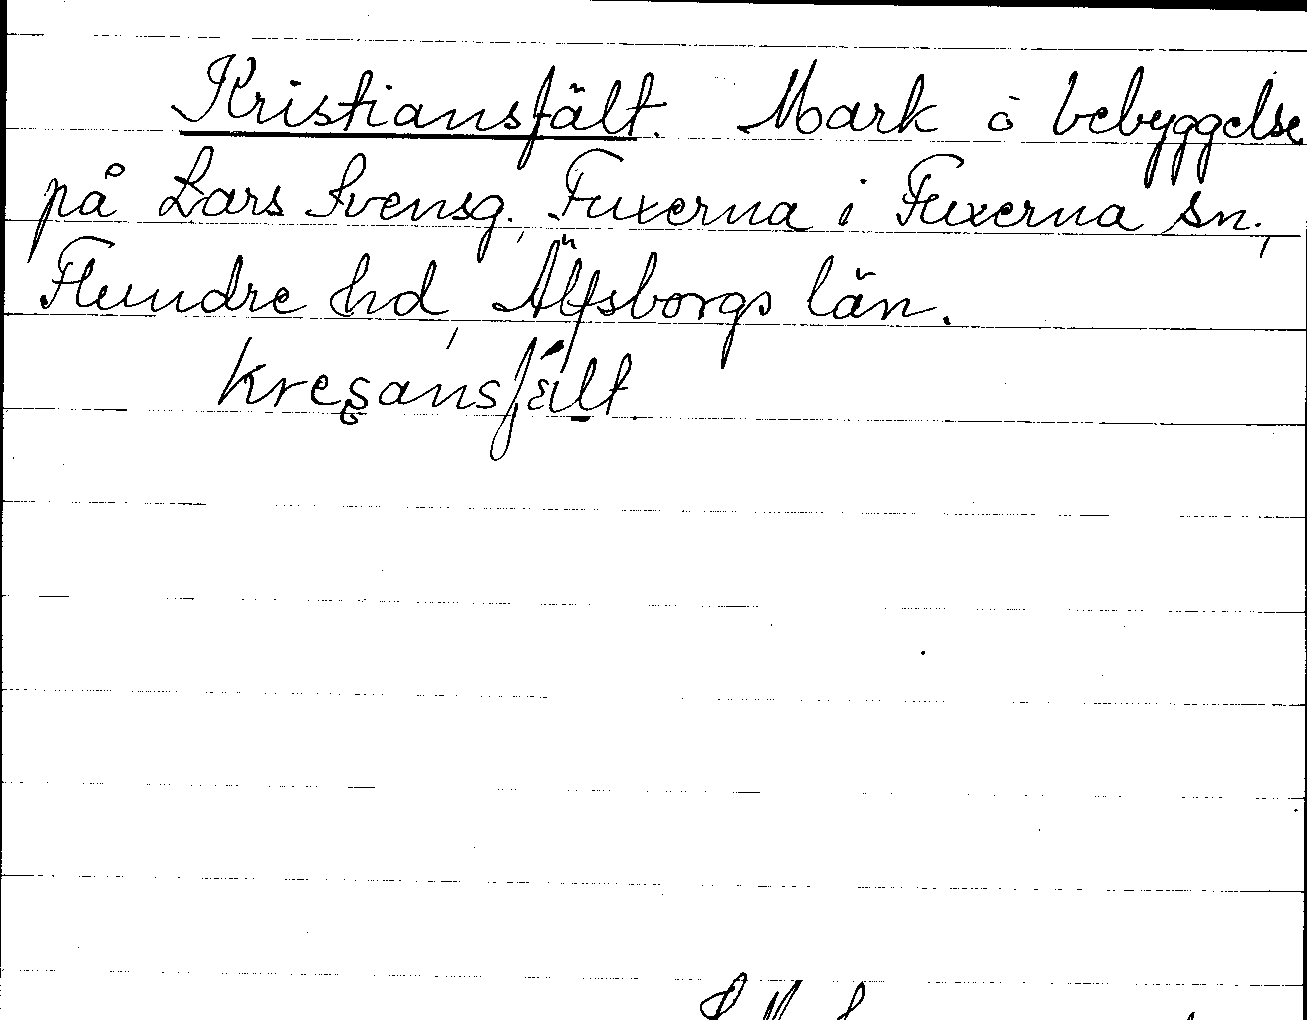 Kristiansfält. Mark o bebyggelse
på Lars Svensg., Fuxerna i Fuxerna sn.,
Flundre hd, Älfsborgs län.
kresansfält.